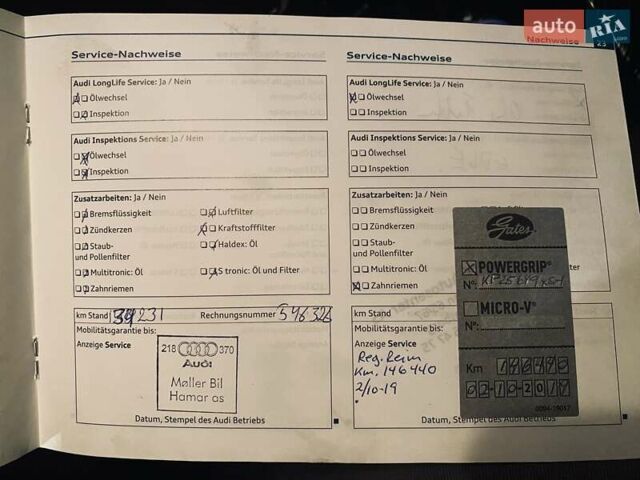 auto RIA
Nachweise
23
Service-Nachweise
Audi LongLife Service: Ja / Nein
Ölwechsel
Inspektion
Audi Inspektions Service: Ja / Nein
Ölwechsel
Inspektion
Zusatzarbeiten: Ja / Nein
Bremsflüssigkeit
Luftfilter
Zündkerzen
Kraftstofffilter
Staub-
und Pollenfilter
Haldex: Öl
Multitronic: Öl
S tronic: Öl und Filter
Zahnriemen
km Stand 39231 Rechnungsnummer 546326
Mobilitätsgarantie bis:
Anzeige Service
218 370
Audi
Møller Bil
Hamar as
Datum, Stempel des Audi Betriebs
Service-Nachweise
Audi LongLife Service: Ja / Nein
Ölwechsel
Inspektion
Audi Inspektions Service: Ja / Nein
Ölwechsel
Inspektion
Zusatzarbeiten: Ja / Nein
Bremsflüssigkeit
Zündkerzen
Staub-
und Pollenfilter
Multitronic: Öl
Zahnriemen
km Stand
Mobilitätsgarantie bis:
Anzeige Service
Reg. Reim
Km. 146440
2/10-19
Datum, Stempel des Audi Betriebs
Gates
POWERGRIP®
Nº:
MICRO-V®
Nº:
Km
02-10-2019